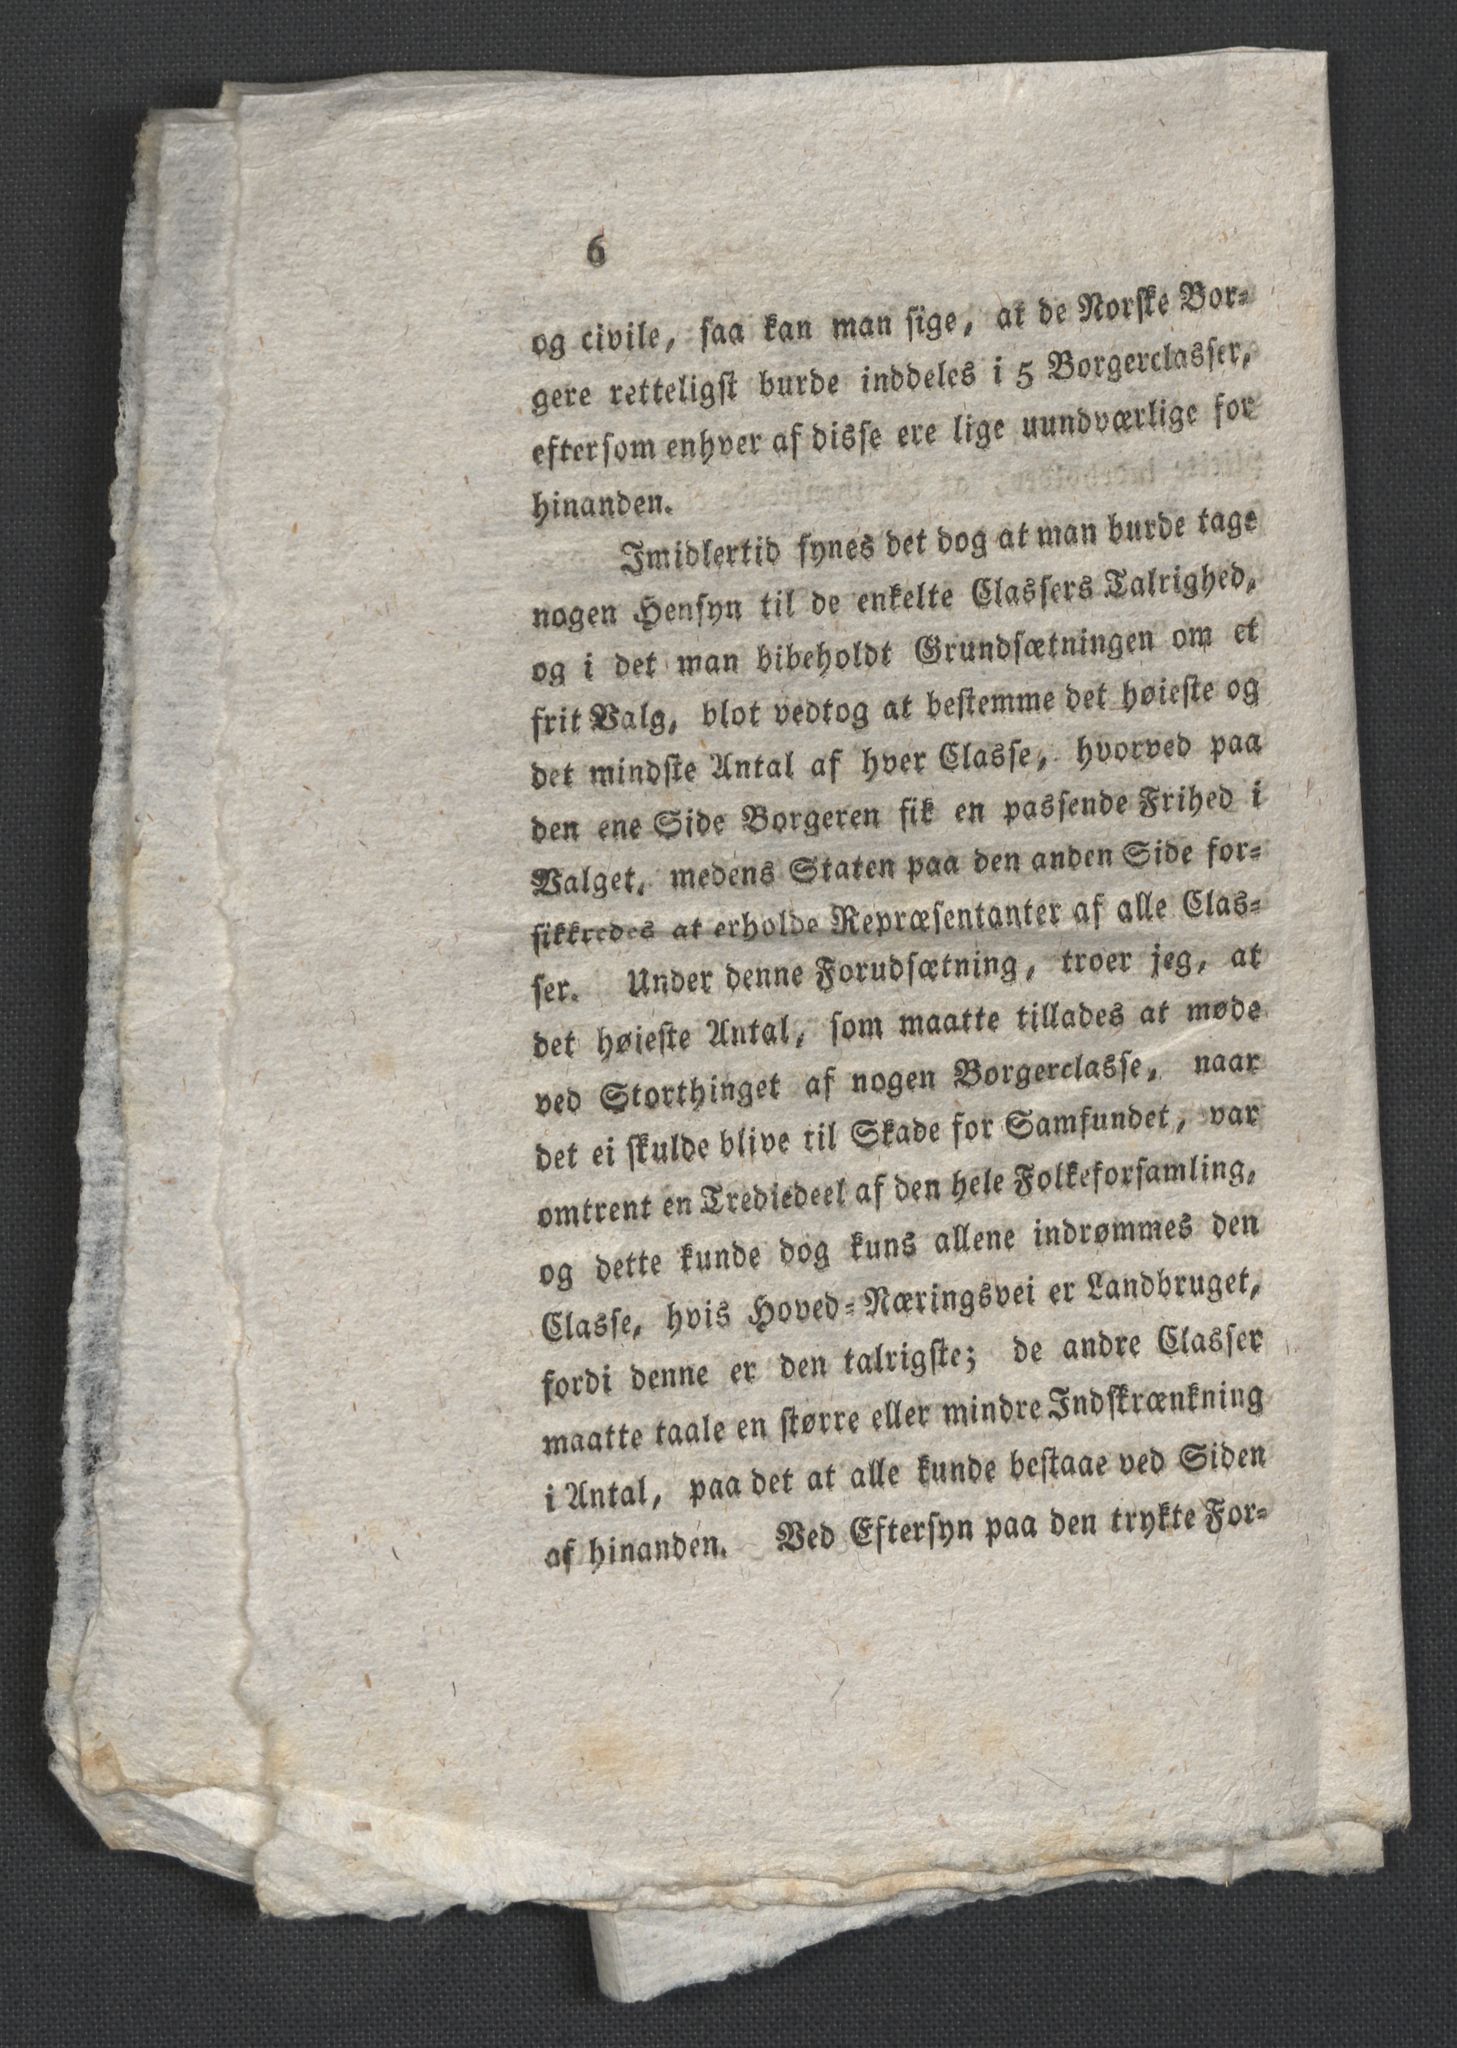 6
og civile, saa kan man sige, at de Norske Bor-
gere retteligst burde inddeles i 5 Borgerclasser,
eftersom enhver af disse ere lige uundværlige for
hinanden.
Imidlertid synes det dog at man burde tage
nogen Hensyn til de enkelte Classers Talrighed,
og i det man bibeholdt Grundsætningen om et
frit Valg, blot vedtog at bestemme det høieste og
det mindste Antal af hver Classe, hvorved paa
den ene Side Borgeren fik en passende Frihed i
Valget, medens Staten paa den anden Side for-
sikkredes at erholde Repræsentanter af alle Clas-
ser. Under denne Forudsætning, troer jeg, at
det høieste Antal, som maatte tillades at møde
ved Storthinget af nogen Borgerclasse, naar
det ei skulde blive til Skade for Samfundet, var
omtrent en Trediedeel af den hele Folkeforsamling,
og dette kunde dog kuns allene indrømmes den
Classe, hvis Hoved-Næringsvei er Landbruget,
fordi denne er den talrigste; de andre Classer
maatte taale en større eller mindre Indskrænkning
i Antal, paa det at alle kunde bestaae ved Siden
af hinanden. Ved Eftersyn paa den trykte For-